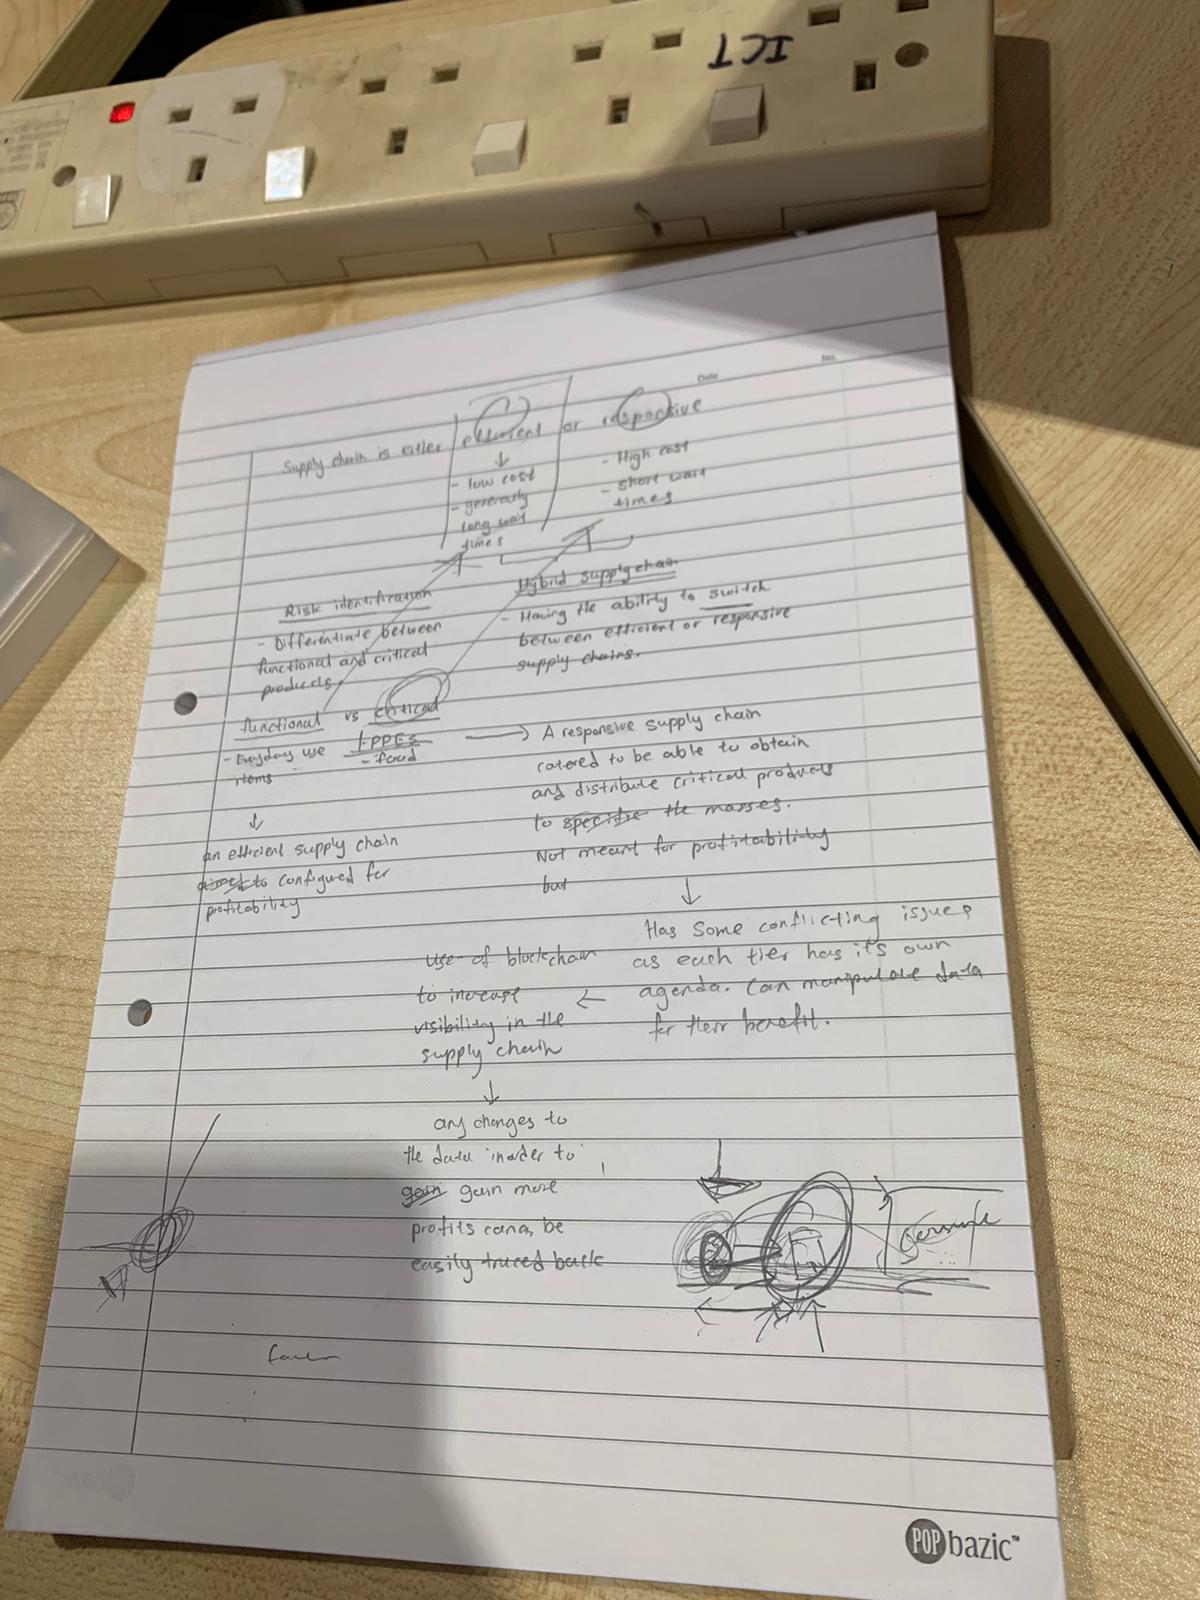 ICT
Date
No.
Supply chain is either efficient or responsive
- low cost
- generally
long wait
times
- High cost
- short wait
times
Risk identification
- Differentiate between
functional and critical
products.
Hybrid supply chain
- Having the ability to switch
between efficient or responsive
supply chains.
functional vs critical
- Everyday use
items
- PPEs
- food
A responsive supply chain
catered to be able to obtain
and distribute critical products
to specific the masses.
Not meant for profitability
but
an efficient supply chain
aimed to configured for
profitability
Has some conflicting issues
as each tier has it's own
agenda. Can manipulate data
for their benefit.
use of blockchain
to increase
visibility in the
supply chain
any changes to
the data inorder to
gain gain more
profits can be
easily traced back
POP bazic™